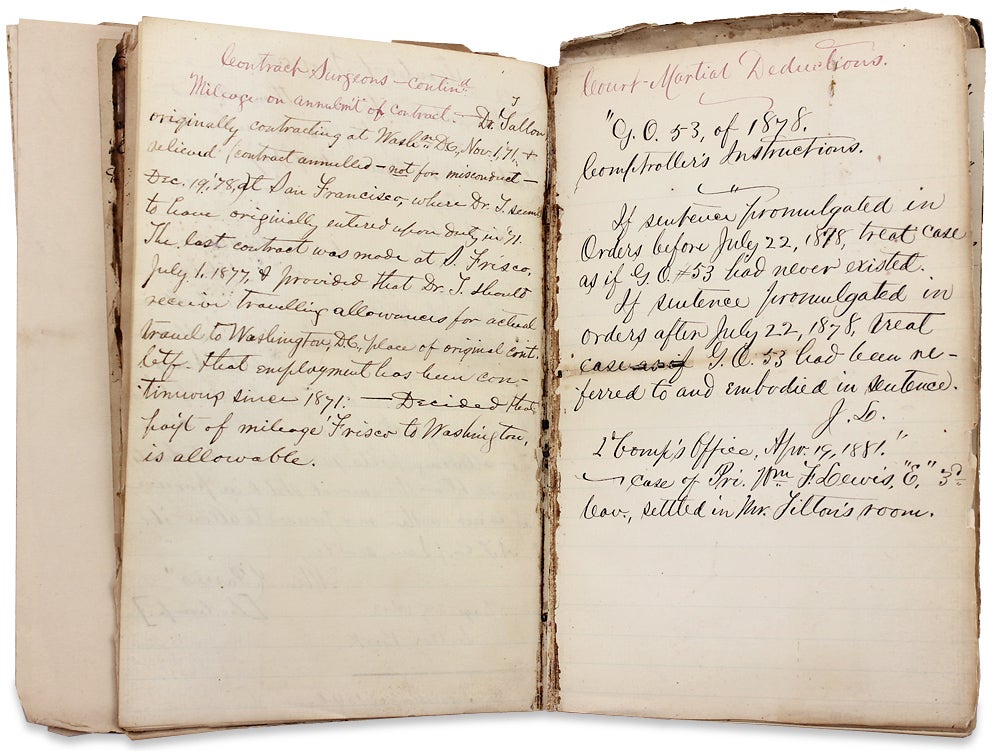 Contract Surgeons – contin'd
Mileage on annulm't of contract. – Dr. J. Tallon
originally contracting at Wash'n, D.C., Nov. 1, '71, &
relieved (contract annulled – not for misconduct –
Dec. 19, '78,) at San Francisco, where Dr. T. seems
to have originally entered upon duty in '71.
The last contract was made at S. Frisco,
July 1. 1877, & provided that Dr. T. should
receive travelling allowances for actual
travel to Washington, D.C., place of original cont.
that employment has been con-
tinuous since 1871: – Decided that
paym't of mileage 'Frisco to Washington,
is allowable.
Court-Martial Deductions.
"G. O. 53, of 1878.
Comptroller's Instructions.
If sentence promulgated in
Orders before July 22, 1878, treat case
as if G. O. #53 had never existed.
If sentence promulgated in
orders after July 22, 1878, treat
case as if G. O. 53 had been re-
ferred to and embodied in sentence.
2d Comp's Office, Apr. 19, 1881."
– case of Pri. Wm F. Lewis, "E," 3d
Cav., settled in Mr. Tilton's room.